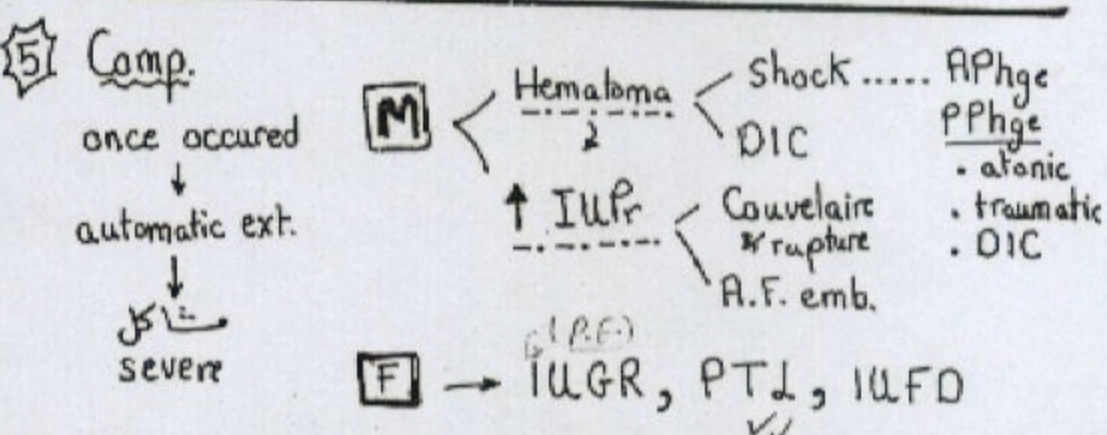 5 Comp.
once occured
↓
automatic ext.
↓
مشاكل
severe
M
Hematoma
Shock ..... APhge
DIC
PPhge
. atonic
. traumatic
. DIC
↑ IUPr
Couvelaire
& rupture
A.F. emb.
F → IUGR, PTL, IUFD